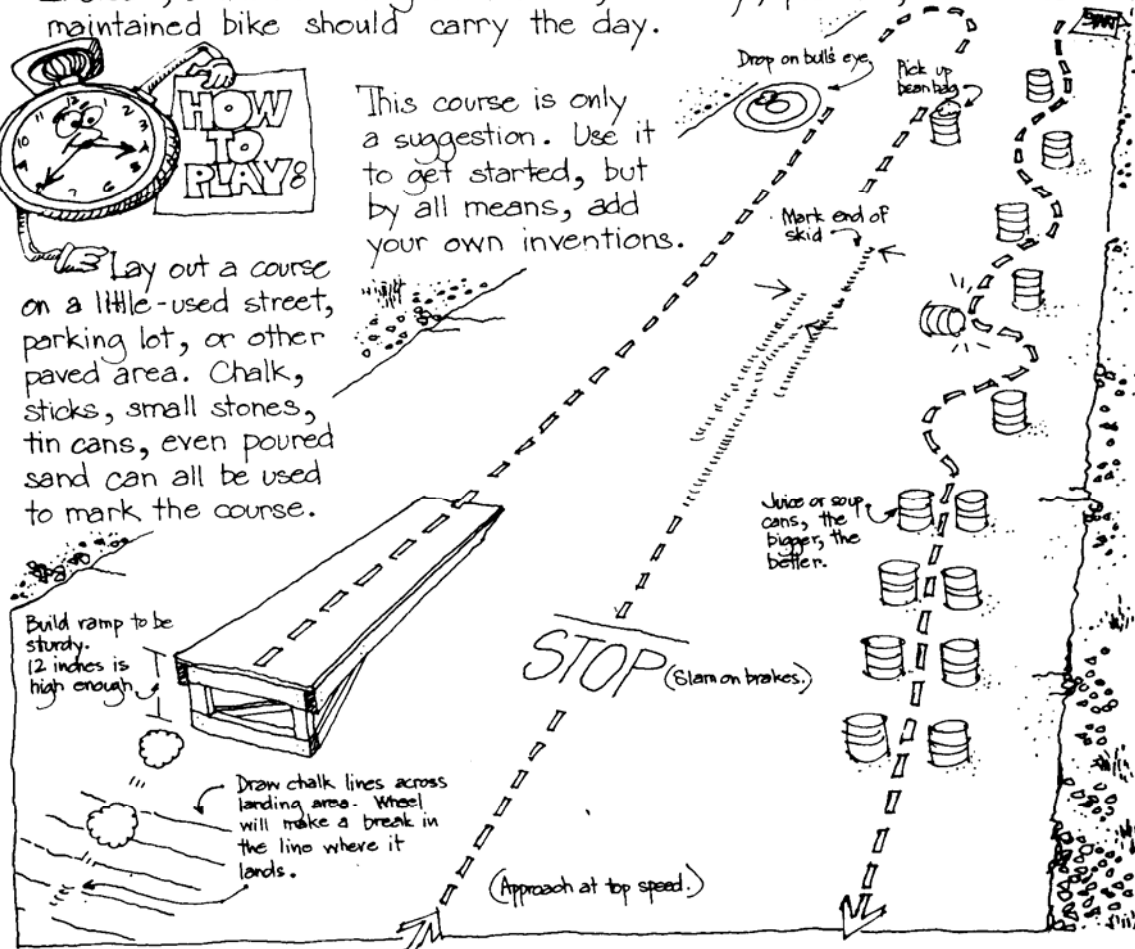 maintained bike should carry the day.
HOW
TO
PLAY:
This course is only
a suggestion. Use it
to get started, but
by all means, add
your own inventions.
Lay out a course
on a little-used street,
parking lot, or other
paved area. Chalk,
sticks, small stones,
tin cans, even poured
sand can all be used
to mark the course.
Drop on bull's eye
Pick up
bean bag
START
Mark end of
skid
Juice or soup
cans, the
bigger, the
better.
Build ramp to be
sturdy.
12 inches is
high enough
STOP (Slam on brakes.)
Draw chalk lines across
landing area. Wheel
will make a break in
the line where it
lands.
(Approach at top speed.)
12
1
2
3
4
5
6
7
8
9
10
11